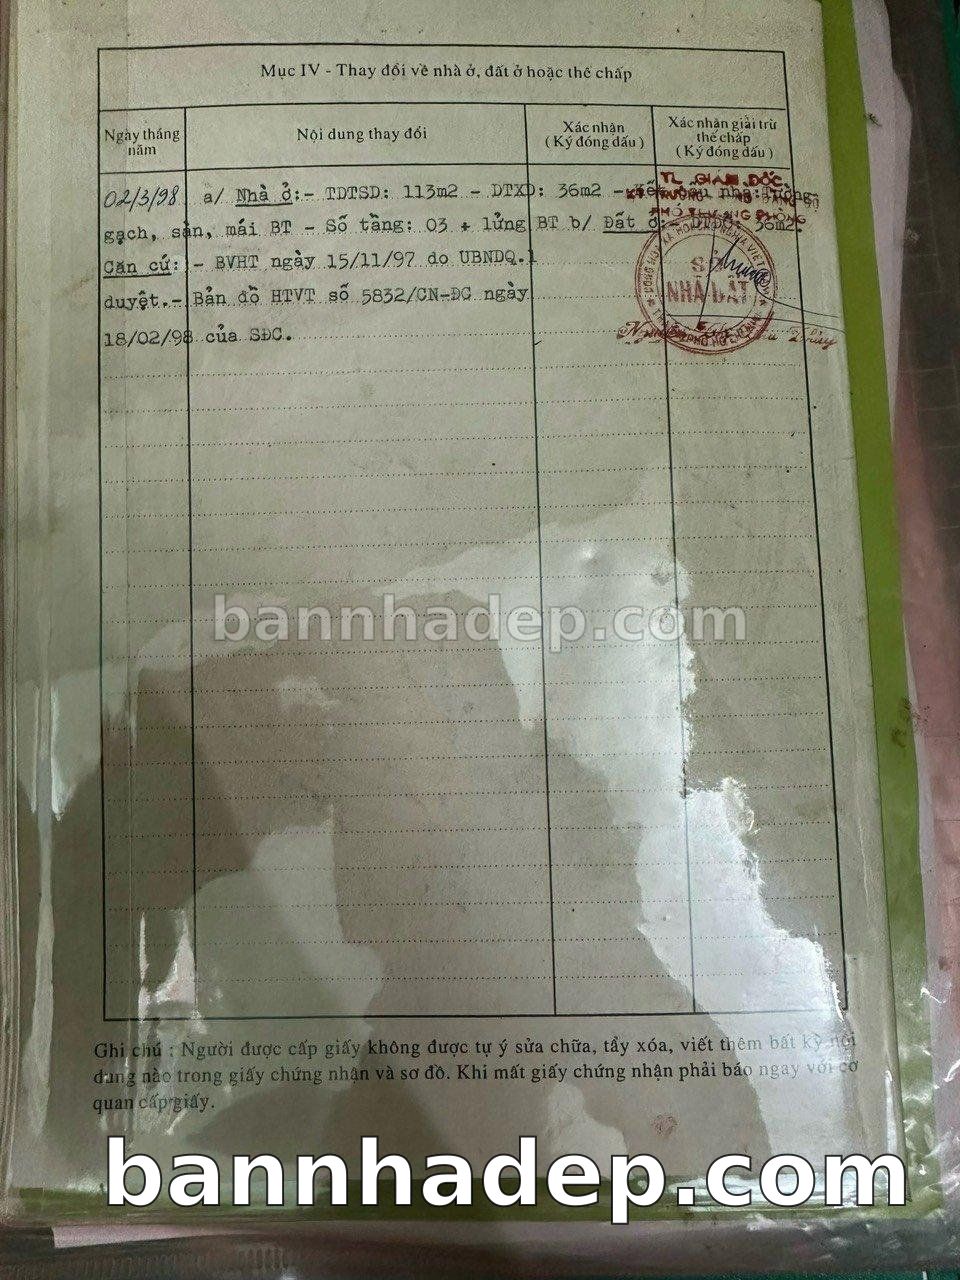 Mục IV - Thay đổi về nhà ở, đất ở hoặc thế chấp
Ngày tháng năm
Nội dung thay đổi
Xác nhận
( Ký đóng dấu )
Xác nhận giải trừ
thế chấp
( Ký đóng dấu )
TL GIÁM ĐỐC
02/3/98 a/ Nhà ở:- TDTSD: 113m2 - DTXD: 36m2 - Kết cấu nhà:Tường
PHÓ TRƯỞNG PHÒNG
gạch, sàn, mái BT - Số tầng: 03 + lửng BT b/ Đất ở:- DTĐƠ: 36m2.
Căn cứ: - BVHT ngày 15/11/97 do UBNDQ.1
SỞ
NHÀ ĐẤT
duyệt.- Bản đồ HTVT số 5832/CN-ĐC ngày
18/02/98 của SĐC.
bannhadep.com
Ghi chú : Người được cấp giấy không được tự ý sửa chữa, tẩy xóa, viết thêm bất kỳ nội
dung nào trong giấy chứng nhận và sơ đồ. Khi mất giấy chứng nhận phải báo ngay với cơ
quan cấp giấy.
bannhadep.com